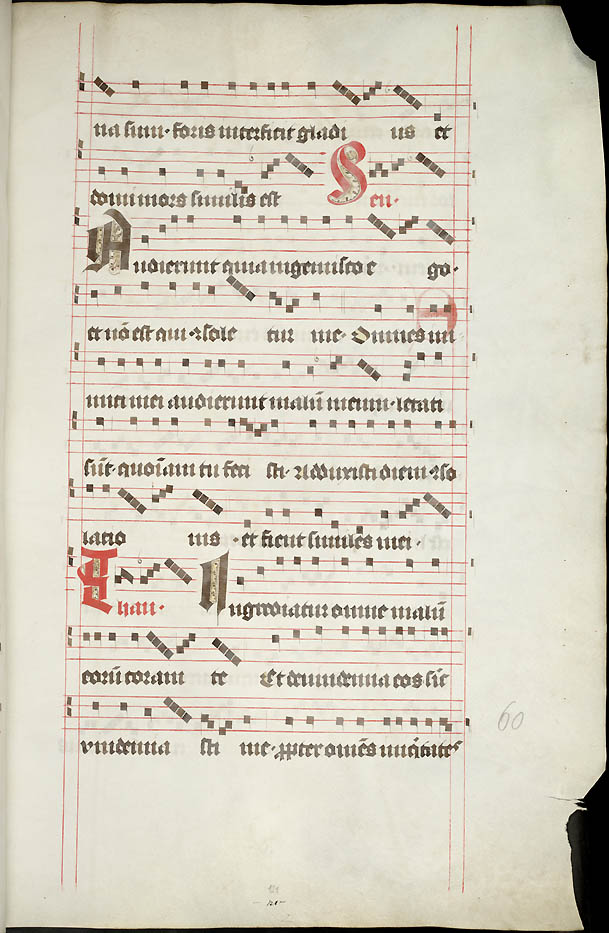 na sum · foris interficit gladi us et
domi mors similis est Sen ·
Audierunt quia ingemisco e go ·
et nō est qui ꝯsole tur me · Omnes ini
mici mei audierunt malū meum · letati
sūt · quoīam tu feci sti · Adduxisti diem ꝯso
latio nis · et fient similes mei ·
Thau · Ingrediatur omne malū
eorū coram te Et deuindemia eos sīc
vindemia sti me · ꝓpter omēs iniq̄itates
60